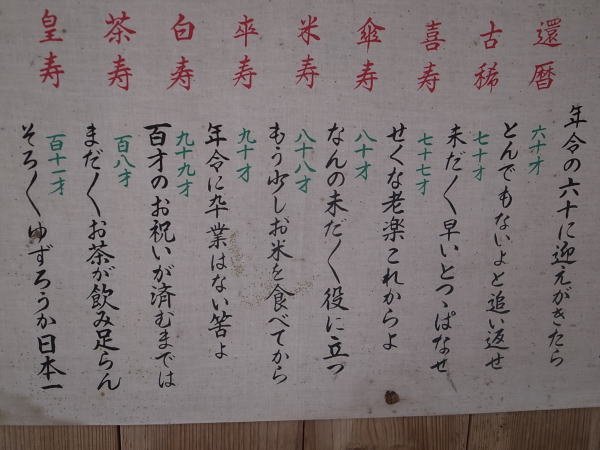 還暦
六十才
年令の六十に迎えがきたら
とんでもないよと追い返せ
古稀
七十才
未だ〳〵早いとつゝぱなせ
喜寿
七十七才
せくな老楽これからよ
傘寿
八十才
なんの未だ〳〵役に立つ
米寿
八十八才
もう少しお米を食べてから
卒寿
九十才
年令に卒業はない筈よ
白寿
九十九才
百才のお祝いが済むまでは
茶寿
百八才
まだ〳〵お茶が飲み足らん
皇寿
百十一才
そろ〳〵ゆずろうか日本一